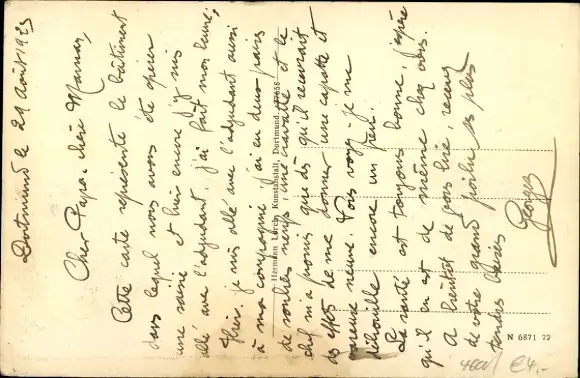 Dortmund le 29 Août 1923
Cher Papa, chère Maman,
Cette carte représente le bâtiment
dans lequel nous avons été
une et hier encore j'y suis
allé avec l'adjudant, j'ai fait mon heure,
hier. je suis allé avec l'adjudant aussi
à ma compagnie, j'ai eu deux paires
de souliers neufs, une cravatte et le
chef m'a promis que dès qu'il recevrait
des effets de me donner une capotte et
vareuse neuve. Vous voyez je me
débrouille encore un peu.
La santé est toujours bonne, j'espère
qu'il en est de même chez vous.
A bientôt de vous lire, recevez
de votre grand poilu ses plus
tendres baisers
Georges
Hermann Lorch, Kunstanstalt, Dortmund.
N 6871 22
460/ €4,-